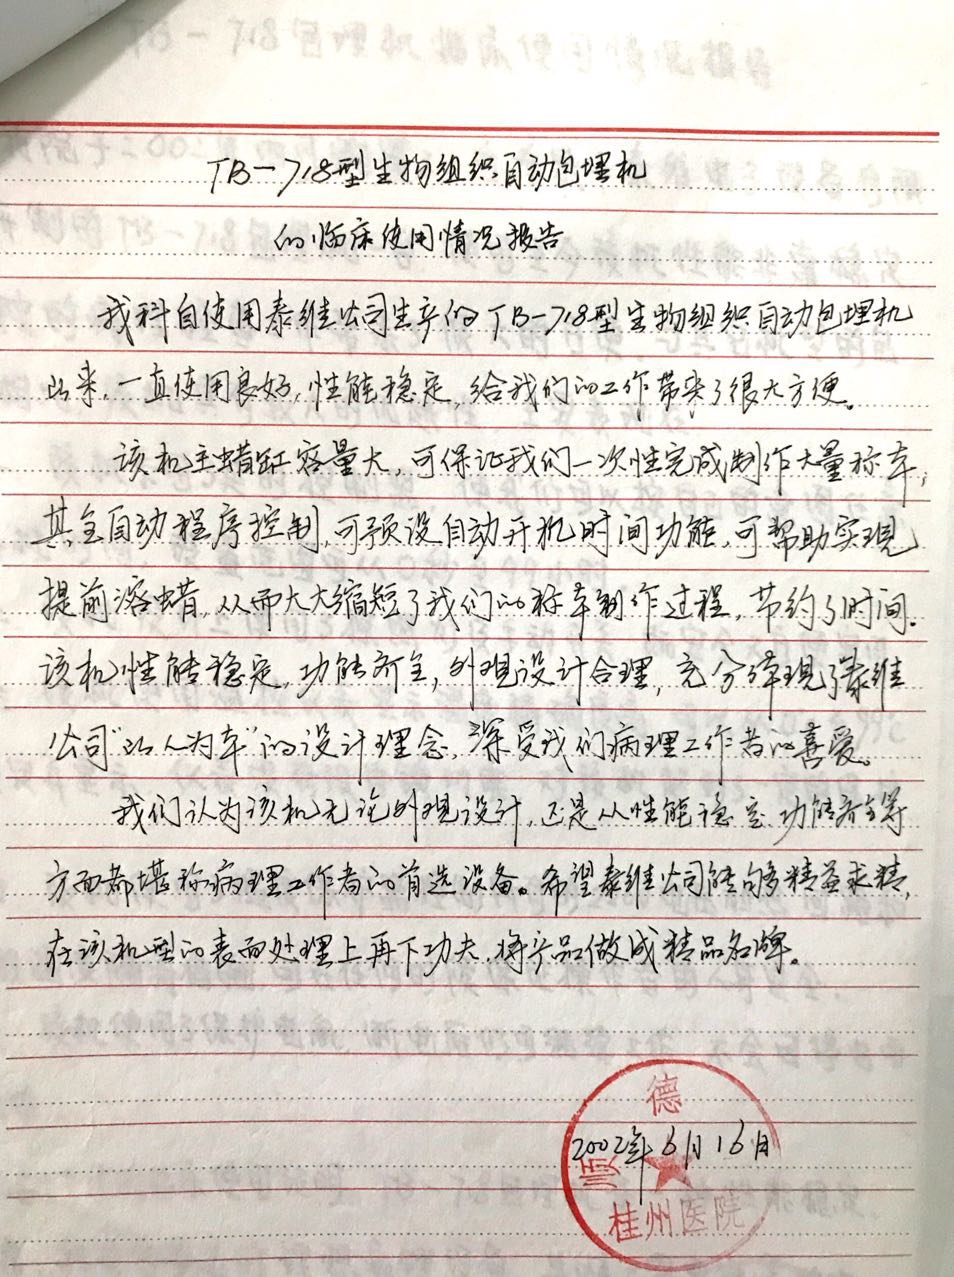 TB-718型生物组织自动包埋机
的临床使用情况报告
我科自使用泰维公司生产的TB-718型生物组织自动包埋机
以来,一直使用良好,性能稳定,给我们的工作带来了很大方便。
该机主蜡缸容量大,可保证我们一次性完成制作大量标本,
其全自动程序控制,可预设自动开机时间功能,可帮助实现
提前溶蜡,从而大大缩短了我们的标本制作过程,节约了时间.
该机性能稳定,功能齐全,外观设计合理,充分体现了泰维
公司“以人为本”的设计理念,深受我们病理工作者的喜爱。
我们认为该机无论外观设计,还是从性能稳定,功能齐全等
方面都堪称病理工作者的首选设备。希望泰维公司能够精益求精,
在该机型的表面处理上再下功夫,将产品做成精品名牌。
2002年6月16日
顺德
桂州医院